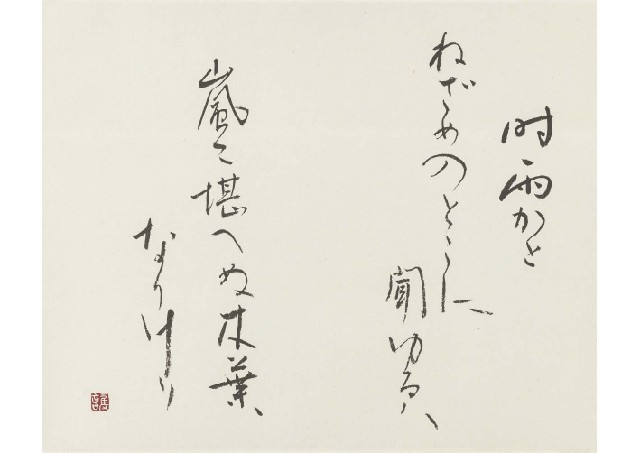 時雨かと
ねざめのとこに
聞ゆるハ
嵐に堪へぬ木葉
なりけり